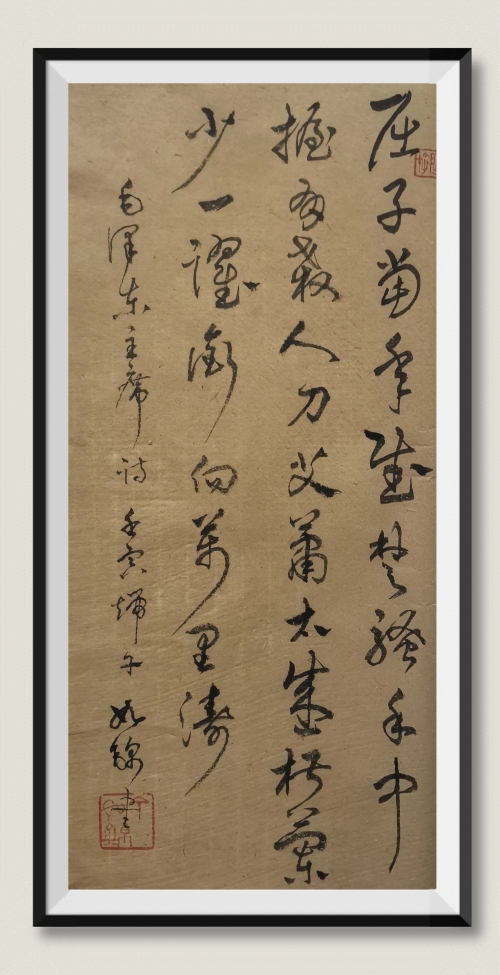 屈子當年賦楚騷手中
握有殺人刀艾蕭太盛椒蘭
少一躍衝向萬里濤
毛澤東主席詩壬寅端午書